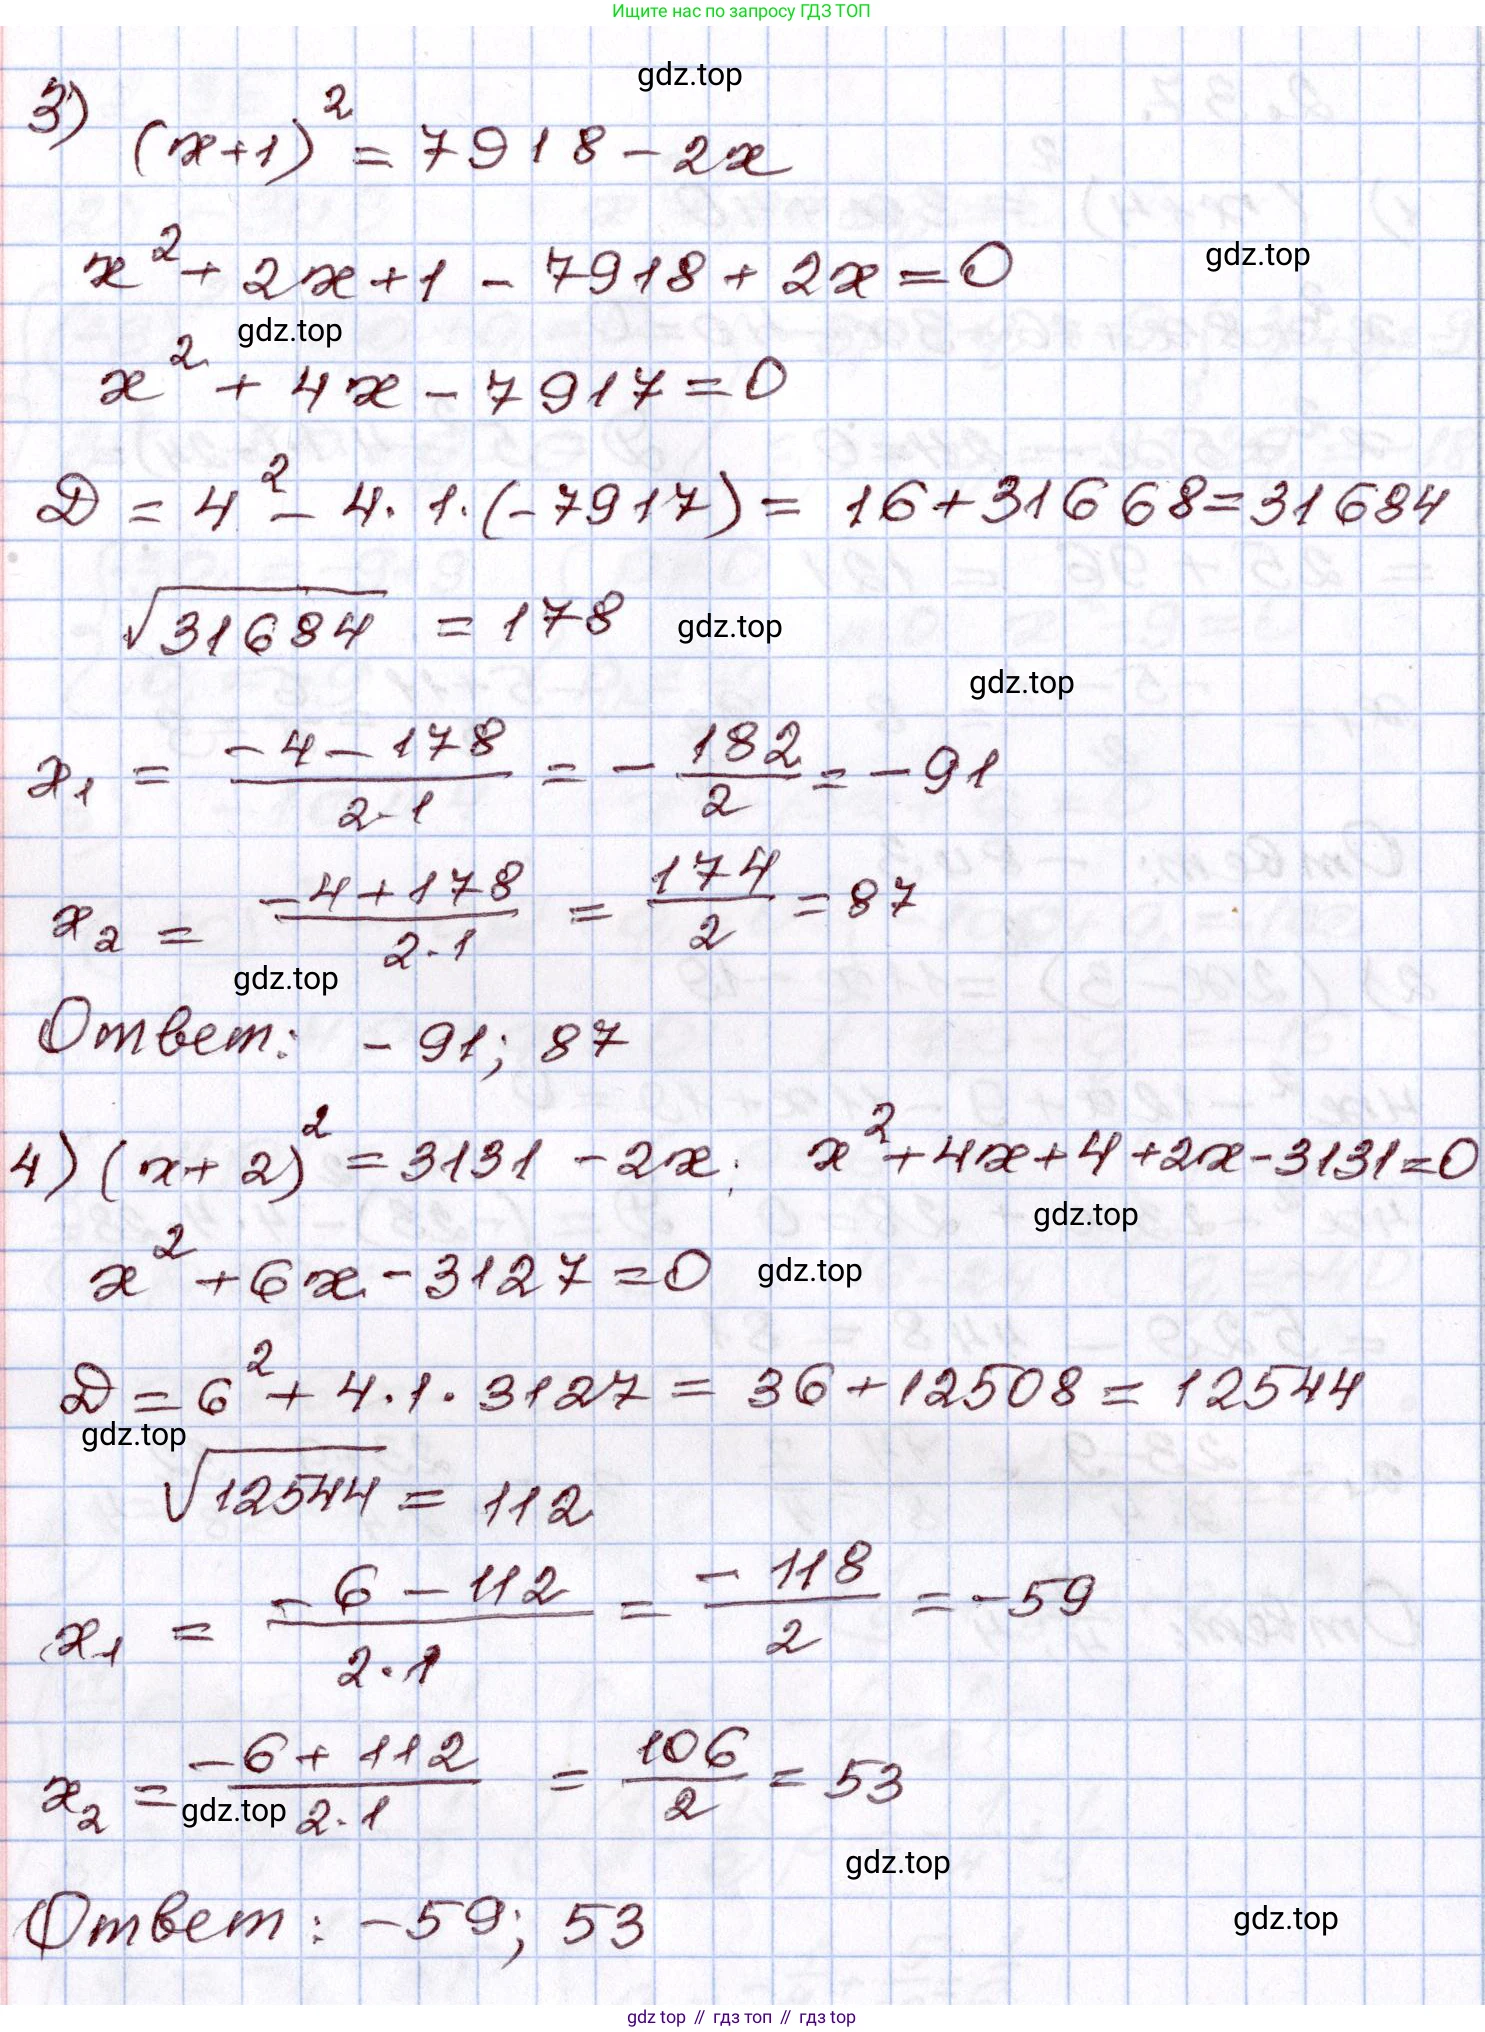 Ищите нас по запросу ГДЗ ТОП
gdz.top
3) (x+1)² = 7918 - 2x
x² + 2x + 1 - 7918 + 2x = 0
gdz.top
gdz.top
x² + 4x - 7917 = 0
D = 4² - 4·1·(-7917) = 16 + 31668 = 31684
√31684 = 178
gdz.top
gdz.top
x₁ = (-4-178)/(2·1) = -182/2 = -91
x₂ = (-4+178)/(2·1) = 174/2 = 87
gdz.top
Ответ: -91; 87
4) (x+2)² = 3131 - 2x; x² + 4x + 4 + 2x - 3131 = 0
gdz.top
x² + 6x - 3127 = 0
gdz.top
D = 6² + 4·1·3127 = 36 + 12508 = 12544
gdz.top
√12544 = 112
x₁ = (-6-112)/(2·1) = -118/2 = -59
x₂ = (-6+112)/(2·1) = 106/2 = 53
gdz.top
gdz.top
Ответ: -59; 53
gdz.top
gdz top // гдз топ // гдз top